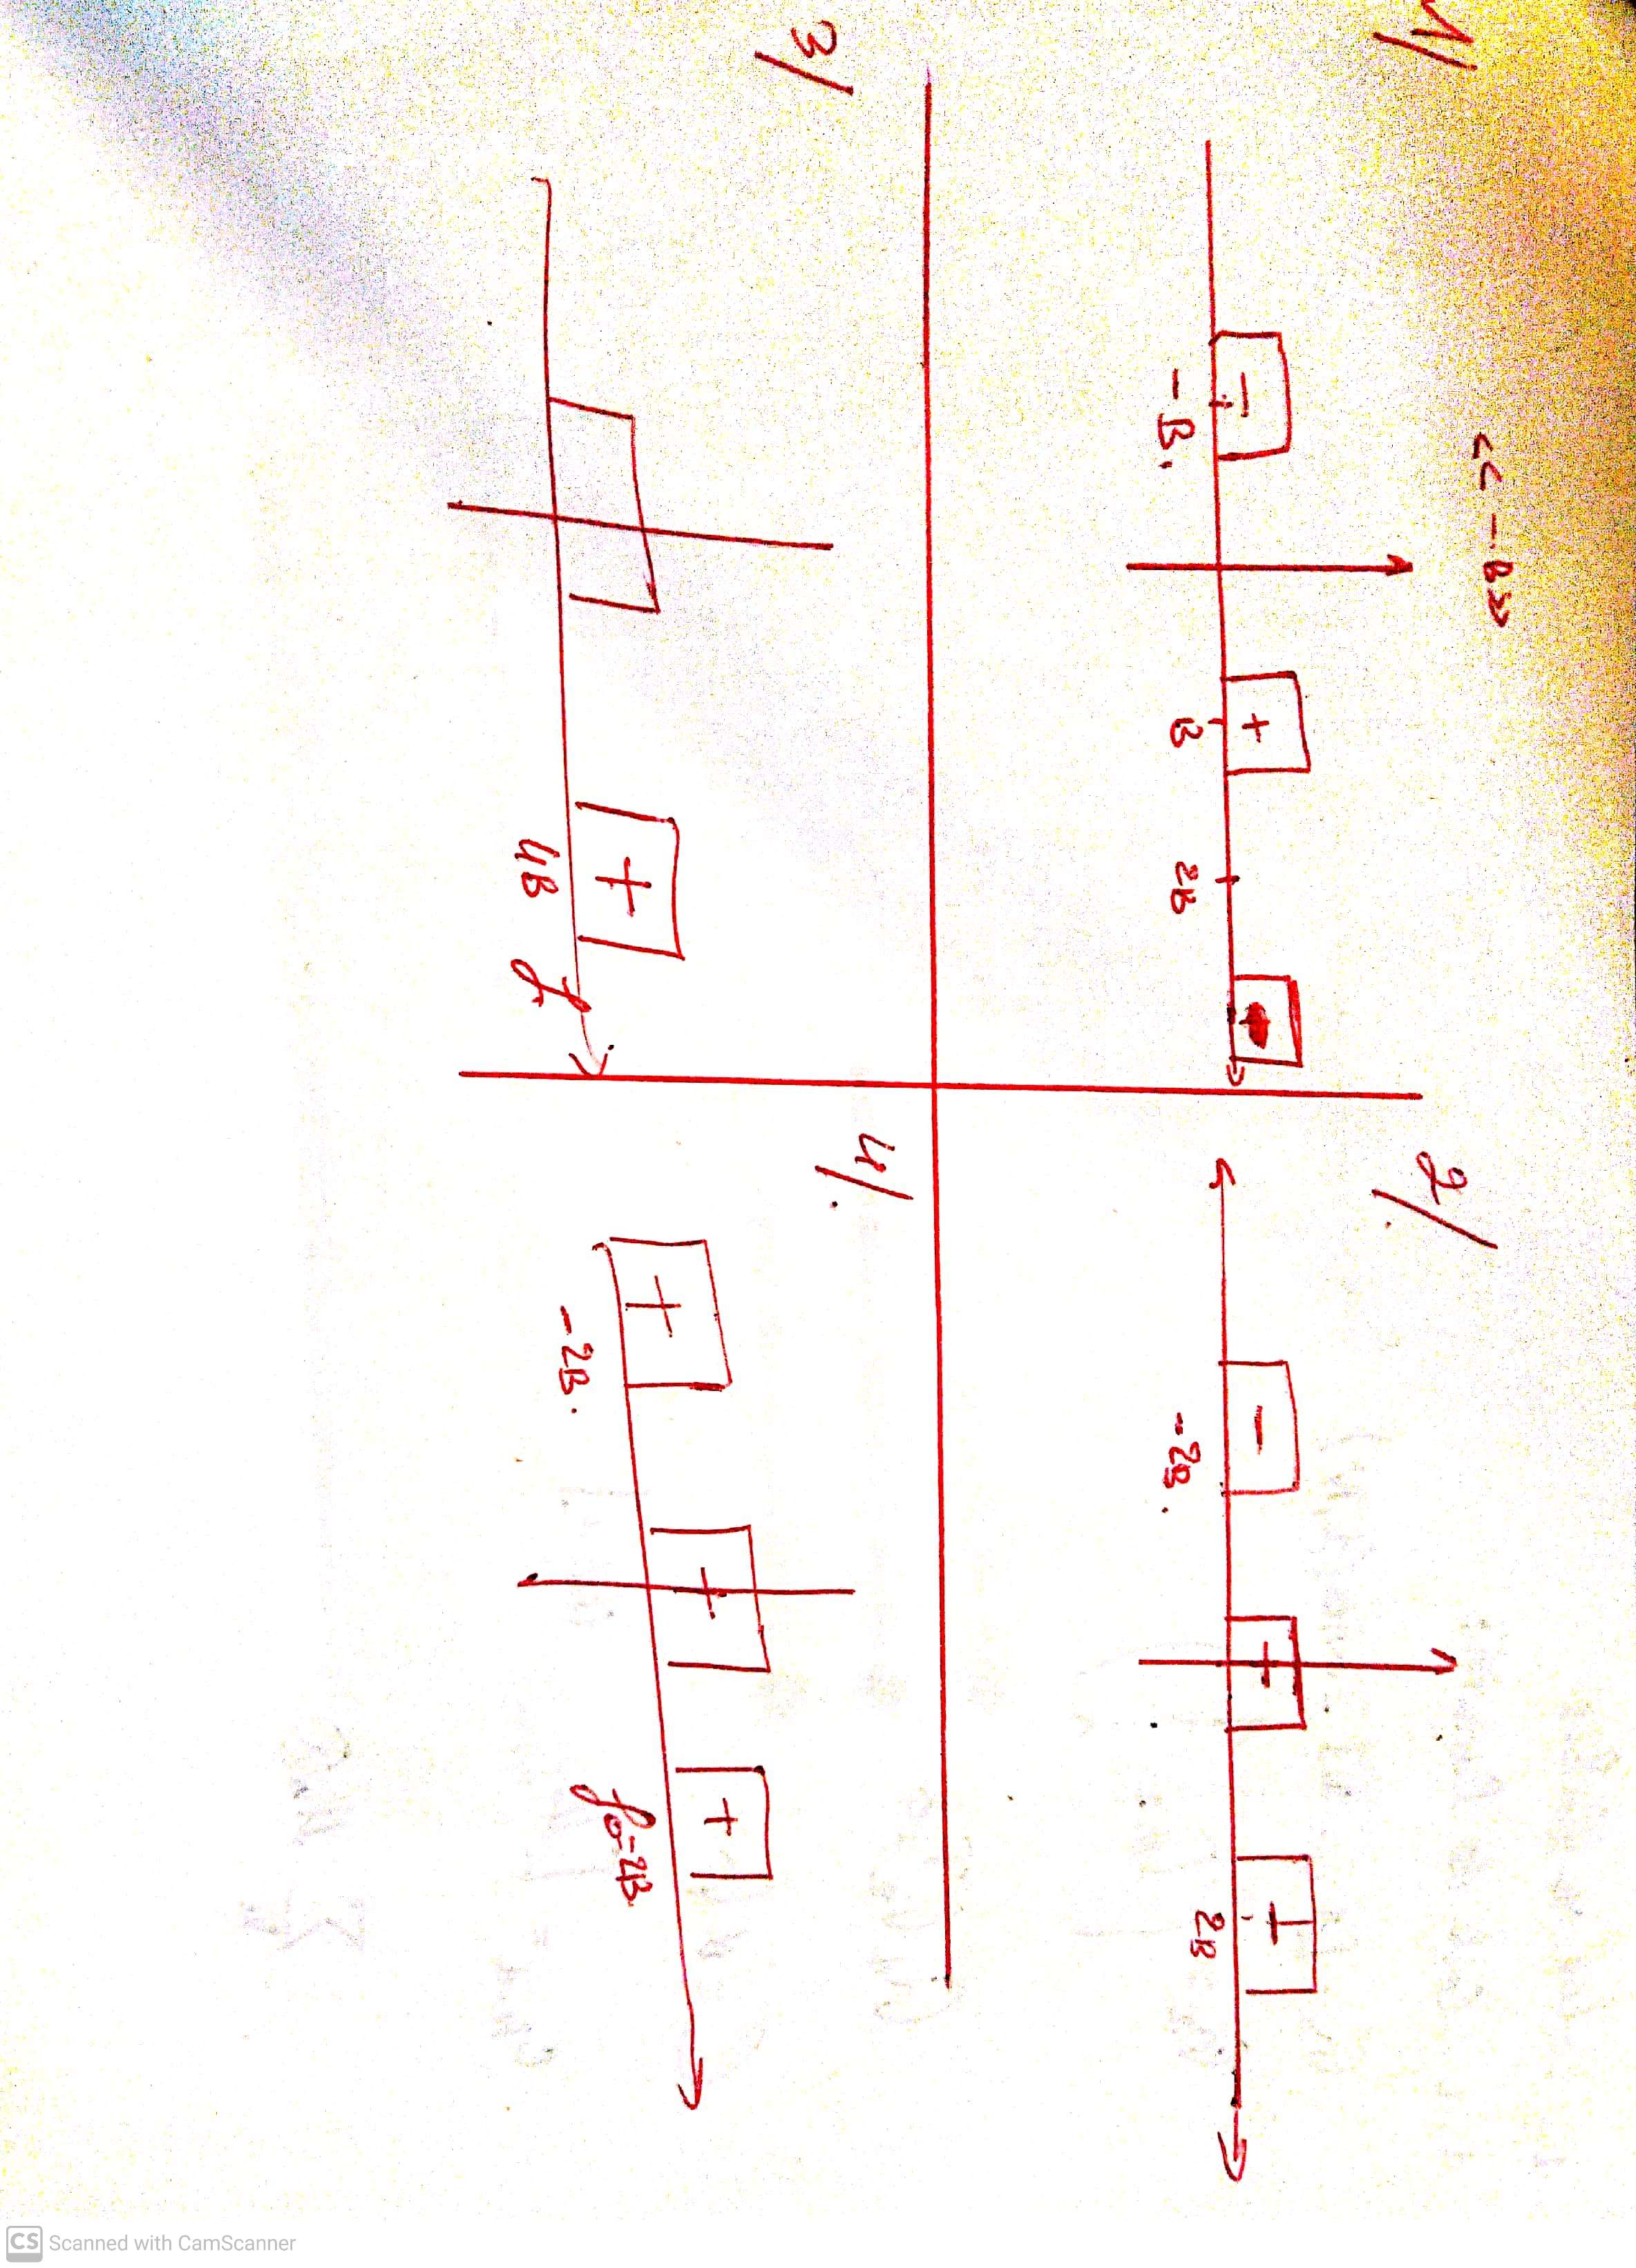 1/
<< -B >>
-
+
+
-B.
B
2B
2/.
-
+
+
-2B.
2B
3/
+
4B
f
4/.
+
+
+
-2B.
f0-2B
CS Scanned with CamScanner